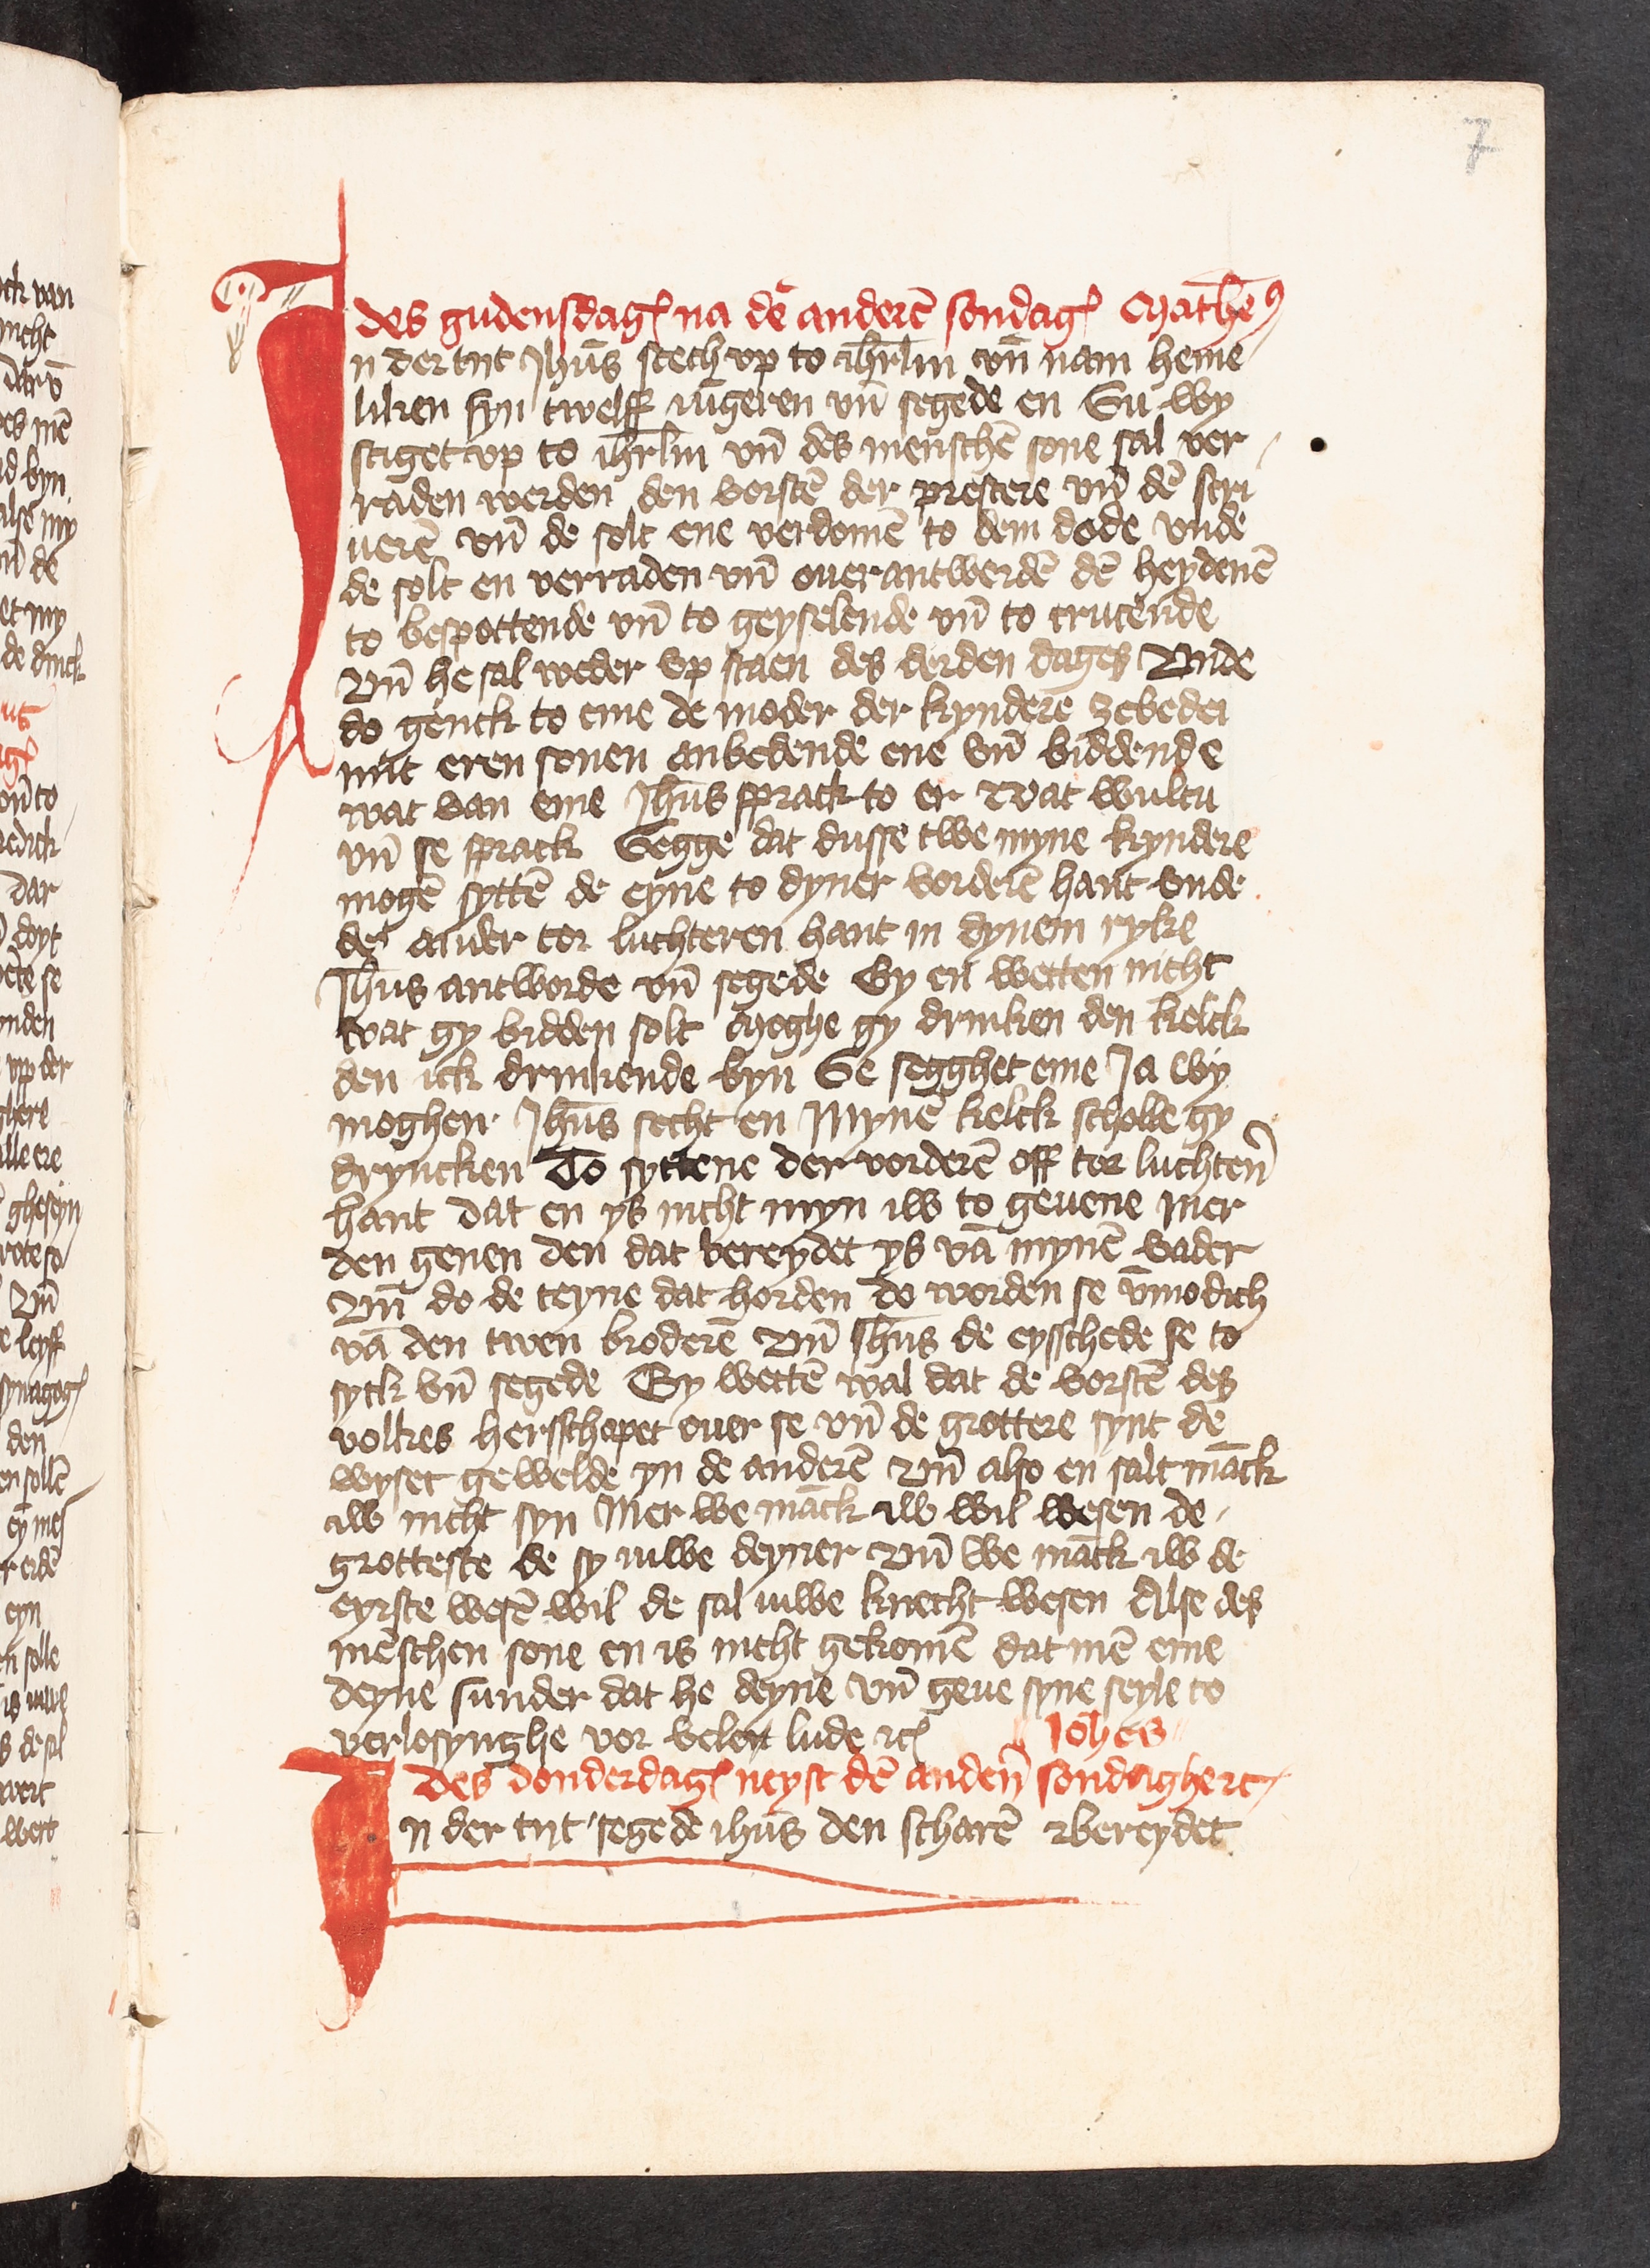 7
des gudensdags na dē anderē sondags Mathe9
In der tyt Jhūs stech vp to ihrlm vn̄ nam heme
liken syn twelff iūgeren vn̄ segede en Su wy
stiget vp to ihrlm vn̄ des menschē sone sal ver
raden werden den vorstē der prestere vn̄ dē scri
uerē vn̄ de solt ene verdomē to dem dode vnde
de solt en verraden vn̄ ouerantwerdē dē heydenē
to bespottende vn̄ to geyselende vn̄ to crucende
Vn̄ he sal weder vp staen des derden dages Vnde
do genck to eme de moder der kynderē zebedei
mit eren sonen anbedende ene vn̄ biddende
wat van eme Jhūs sprack to er wat wultu
vn̄ se sprack Segge dat dusse twe myne kyndere
mogē syttē de eyne to dyner vorderē hant vnde
de ander tor luchteren hant in dynem ryke
Jhūs antworde vn̄ segede Gy en wetten nicht
wat gy bidden solt Moghe gy drinken den kelck
den ick drinkende byn Se segghet eme Ja wy
moghen Jhūs secht en Mynē kelck scholle gy
dryncken To syttene der vorderē off tor luchten̄
hant dat en ys nicht myn iw to geuene Mer
den genen den dat bereydet ys vā mynē vader
Vn̄ do de teyne dat horden do worden se v̄modich
vā den twen broderē Vn̄ Jhūs de eysschede se to
syck vn̄ segede Gy wettē wal dat de vorstē des
volkes herschapet ouer se vn̄ de grottere synt de
wyset gewelde yn de anderē Vn̄ also en salt māck
iw nicht syn Mer we māck iw wil wesen de
grotteste de sy iuwe deyner Vn̄ we māck iw de
eyrste wesē wil de sal iuwe knecht wesen Alse des
mēschen sone en is nicht gekomē dat mē eme
deyne sunder dat he deyne vn̄ geue syne seyle to
verlosynghe vor velen lude rc
Johēs
des donderdags neyst dē anden̄ sondaghe rc
In der tyt segede ihūs den scharē bereydet